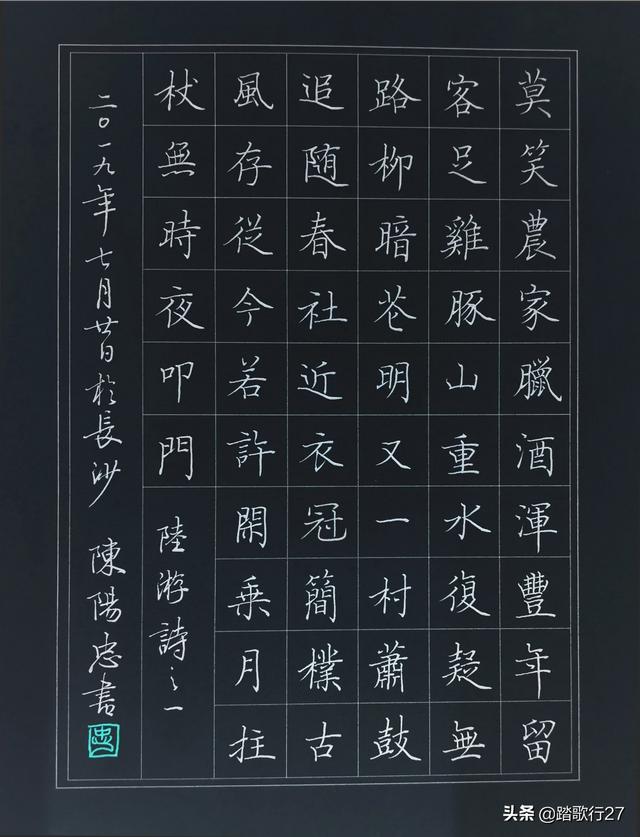 莫笑農家臘酒渾豐年留
客足雞豚山重水復疑無
路柳暗花明又一村蕭鼓
追随春社近衣冠簡樸古
風存從今若許閑乘月拄
杖無時夜叩門
陸游詩之一
二〇一九年七月廿日於長沙 陳陽忠書
忠
头条 @踏歌行27